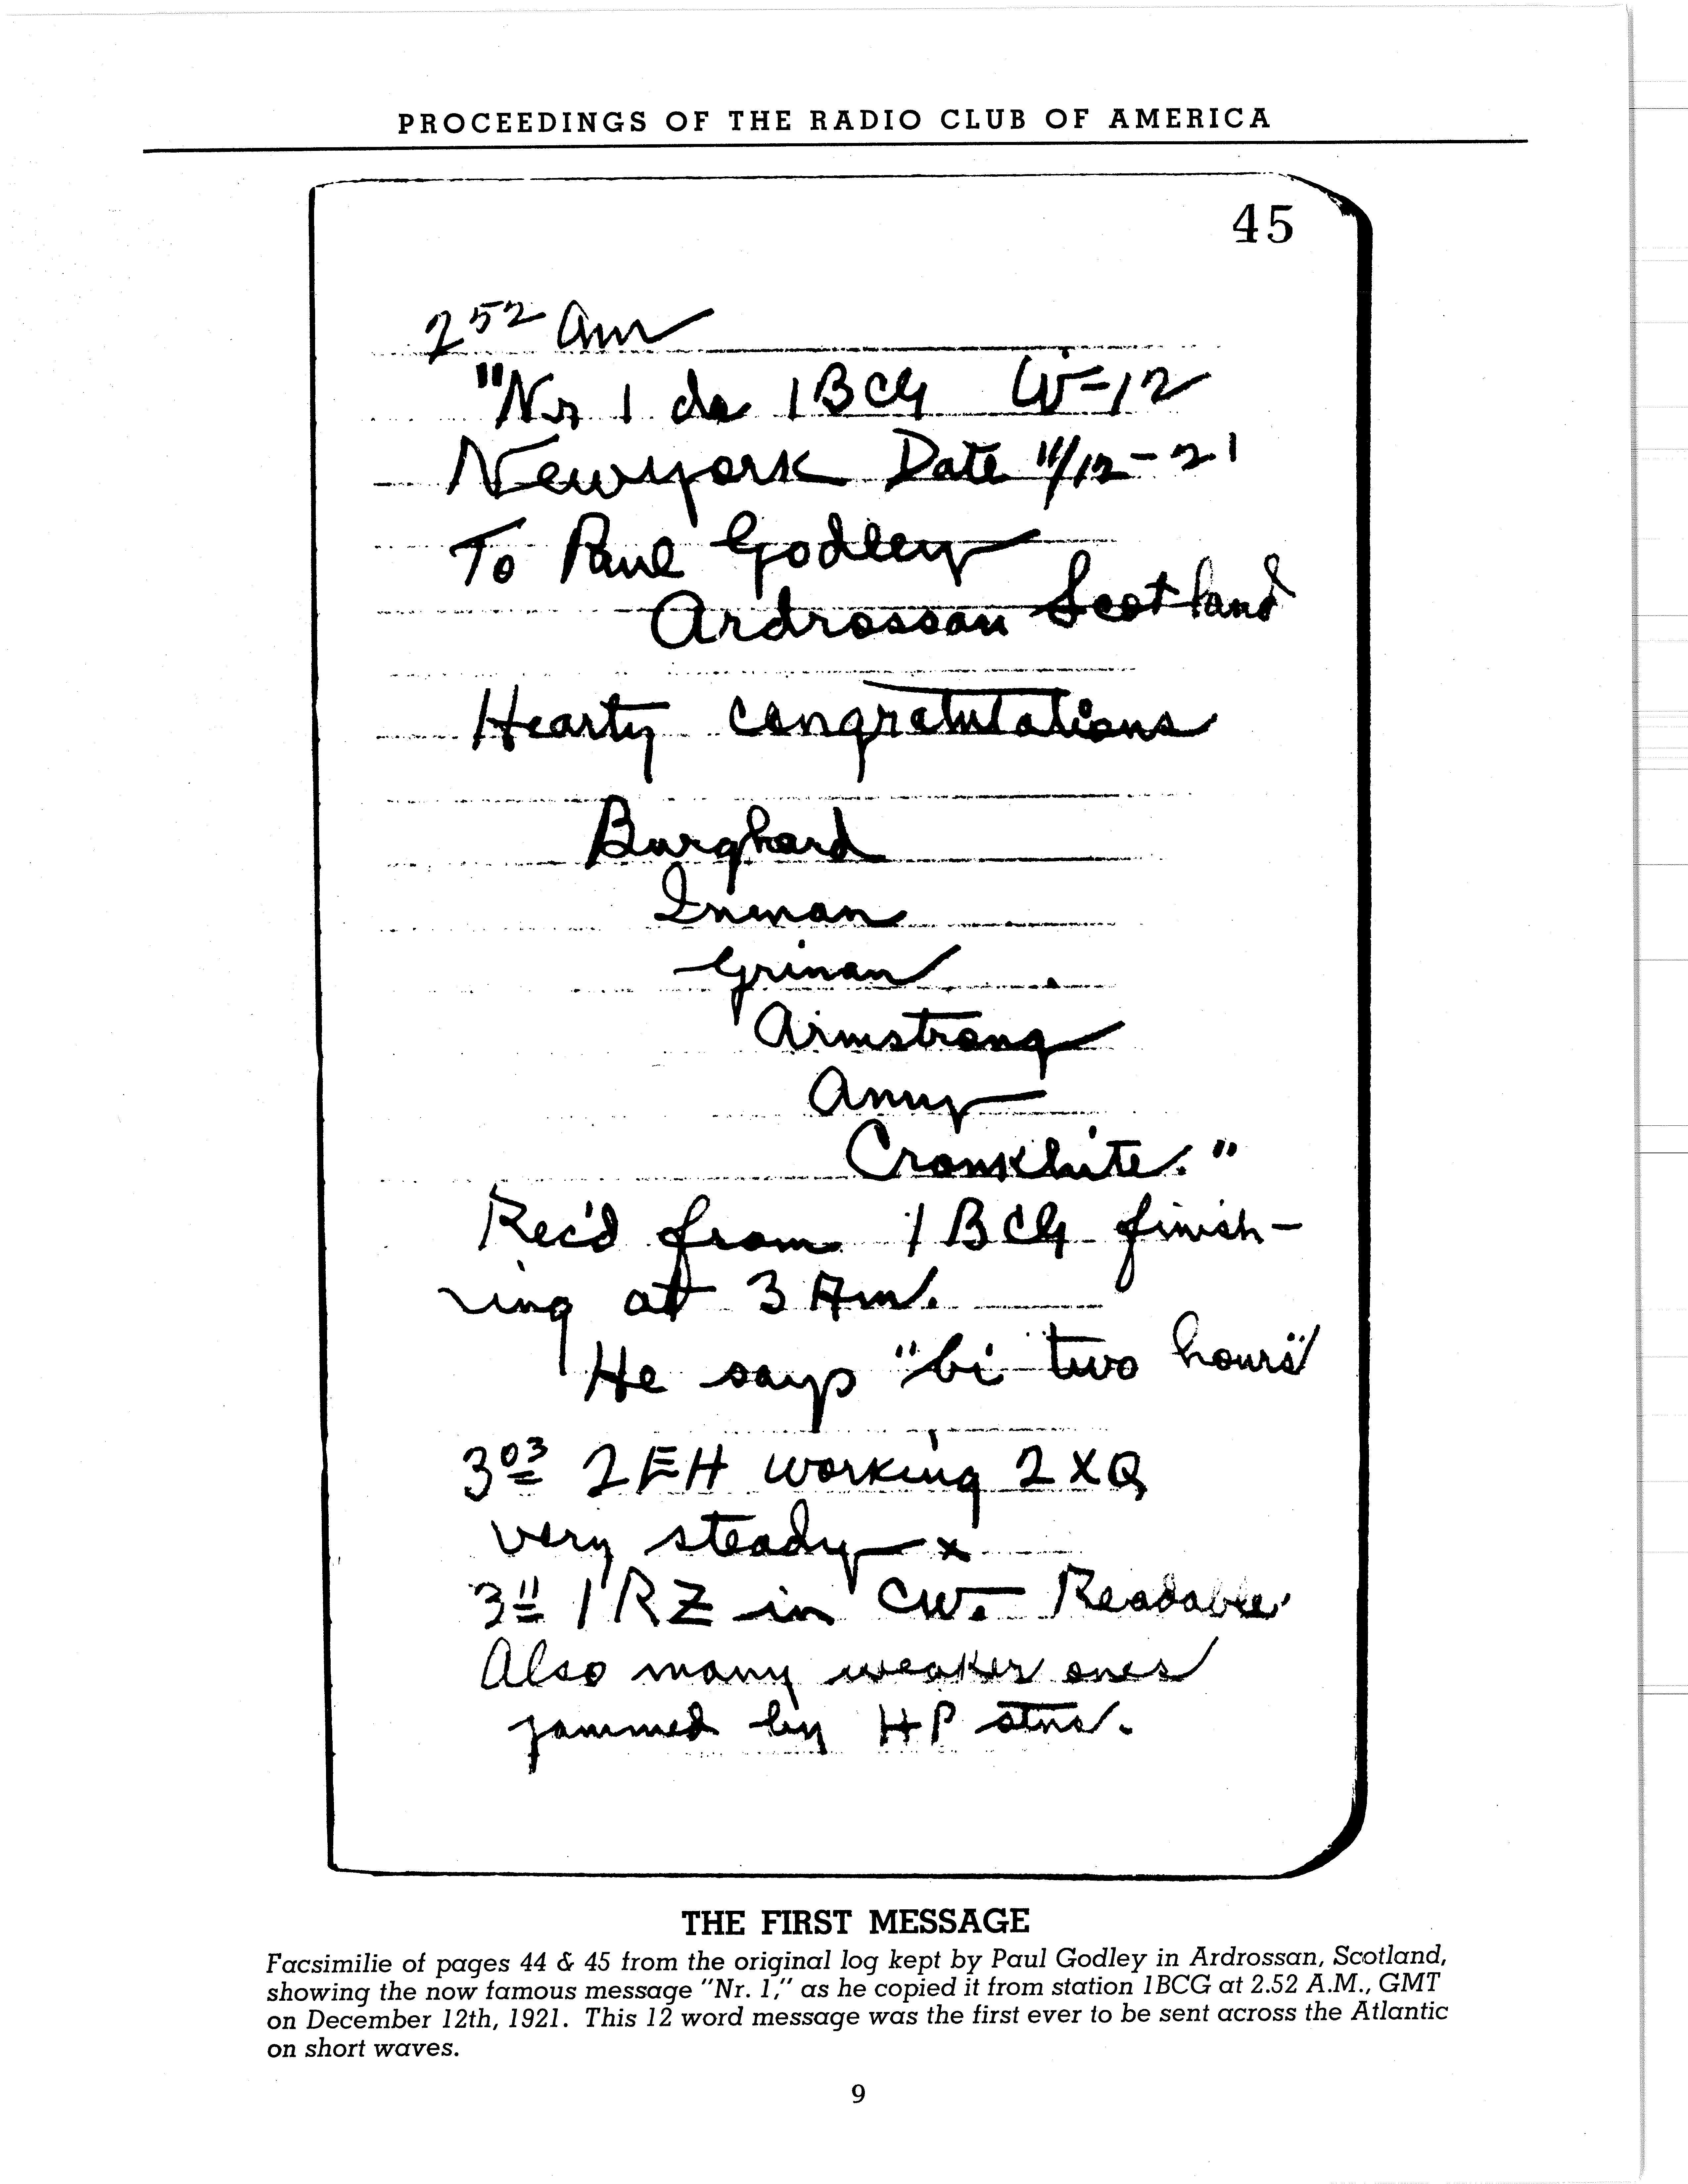 PROCEEDINGS OF THE RADIO CLUB OF AMERICA
45
2 52 am
"Nr 1 de 1BCG W=12
Newyork Date 11/12-21
To Paul Godley
Ardrossan Scotland
Hearty congratulations
Burghard
Inman
Grinan
Armstrong
Amy
Cronkhite."
Rec'd from 1BCG finish-
ing at 3 Am.
He says "bi two hours"
3 03 2EH working 2XQ
very steady x
3 11 1RZ in CW. Readable
Also many weaker ones
jammed by HP stns.
THE FIRST MESSAGE
Facsimilie of pages 44 & 45 from the original log kept by Paul Godley in Ardrossan, Scotland,
showing the now famous message "Nr. 1," as he copied it from station 1BCG at 2.52 A.M., GMT
on December 12th, 1921. This 12 word message was the first ever to be sent across the Atlantic
on short waves.
9